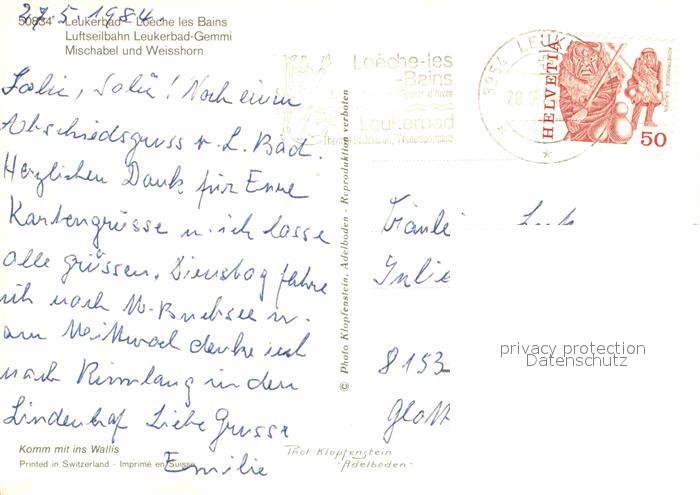 27.5.1984.
50834 Leukerbad - Loèche les Bains
Luftseilbahn Leukerbad-Gemmi
Mischabel und Weisshorn
Salü, Salü! Noch einen
Abschiedsgruss v. L. Bad.
Herzlichen Dank für Eure
Kartengrüsse u. ich lasse
alle grüssen. Dienstag fahre
ich nach M-Buchsee u.
am Mittwoch denke ich
nach Rümlang in den
Lindenhof Liebe Grüsse
Emilie
Komm mit ins Wallis
Printed in Switzerland - Imprimé en Suisse
© Photo Klopfenstein, Adelboden - Reproduktion verboten
Loèche-les
-Bains
Leukerbad
3954 LEUK
28.5
HELVETIA
50
Fräulei
8153
Glatt
privacy protection
Datenschutz
Phot. Klopfenstein
-Adelboden-